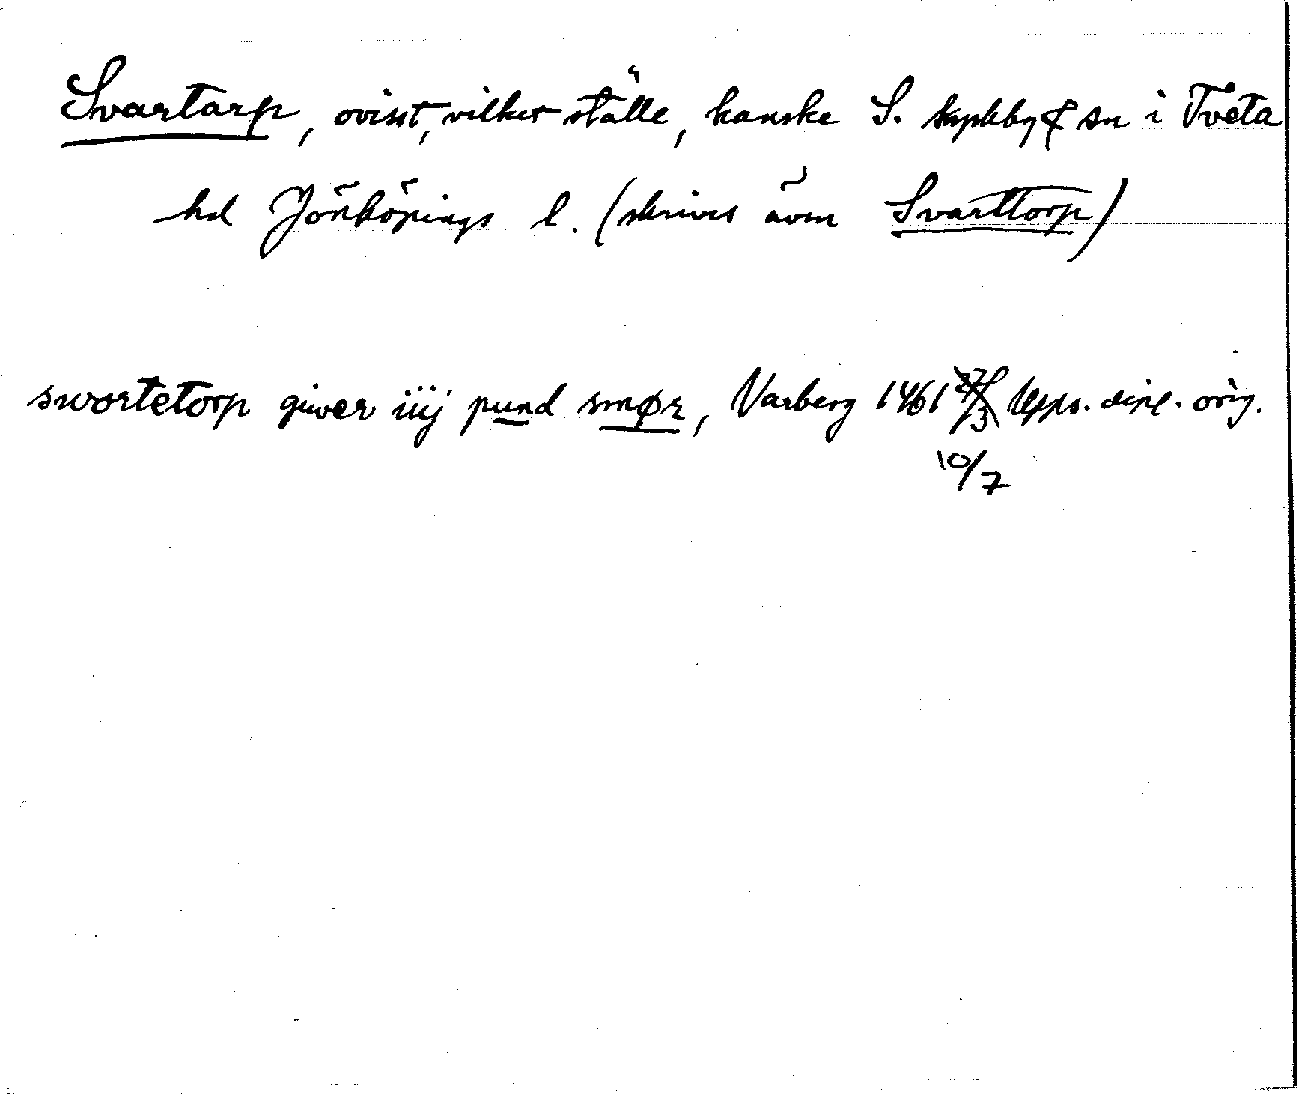 Svartarp, ovisst, vilket ställe, kanske S. kyrkby & sn i Tveta
hd Jönköpings l. (skrives även Svarttorp)
swortetorp giver iiij pund smør, Varberg 1461 27/3 Upps. dipl. orig.
10/7